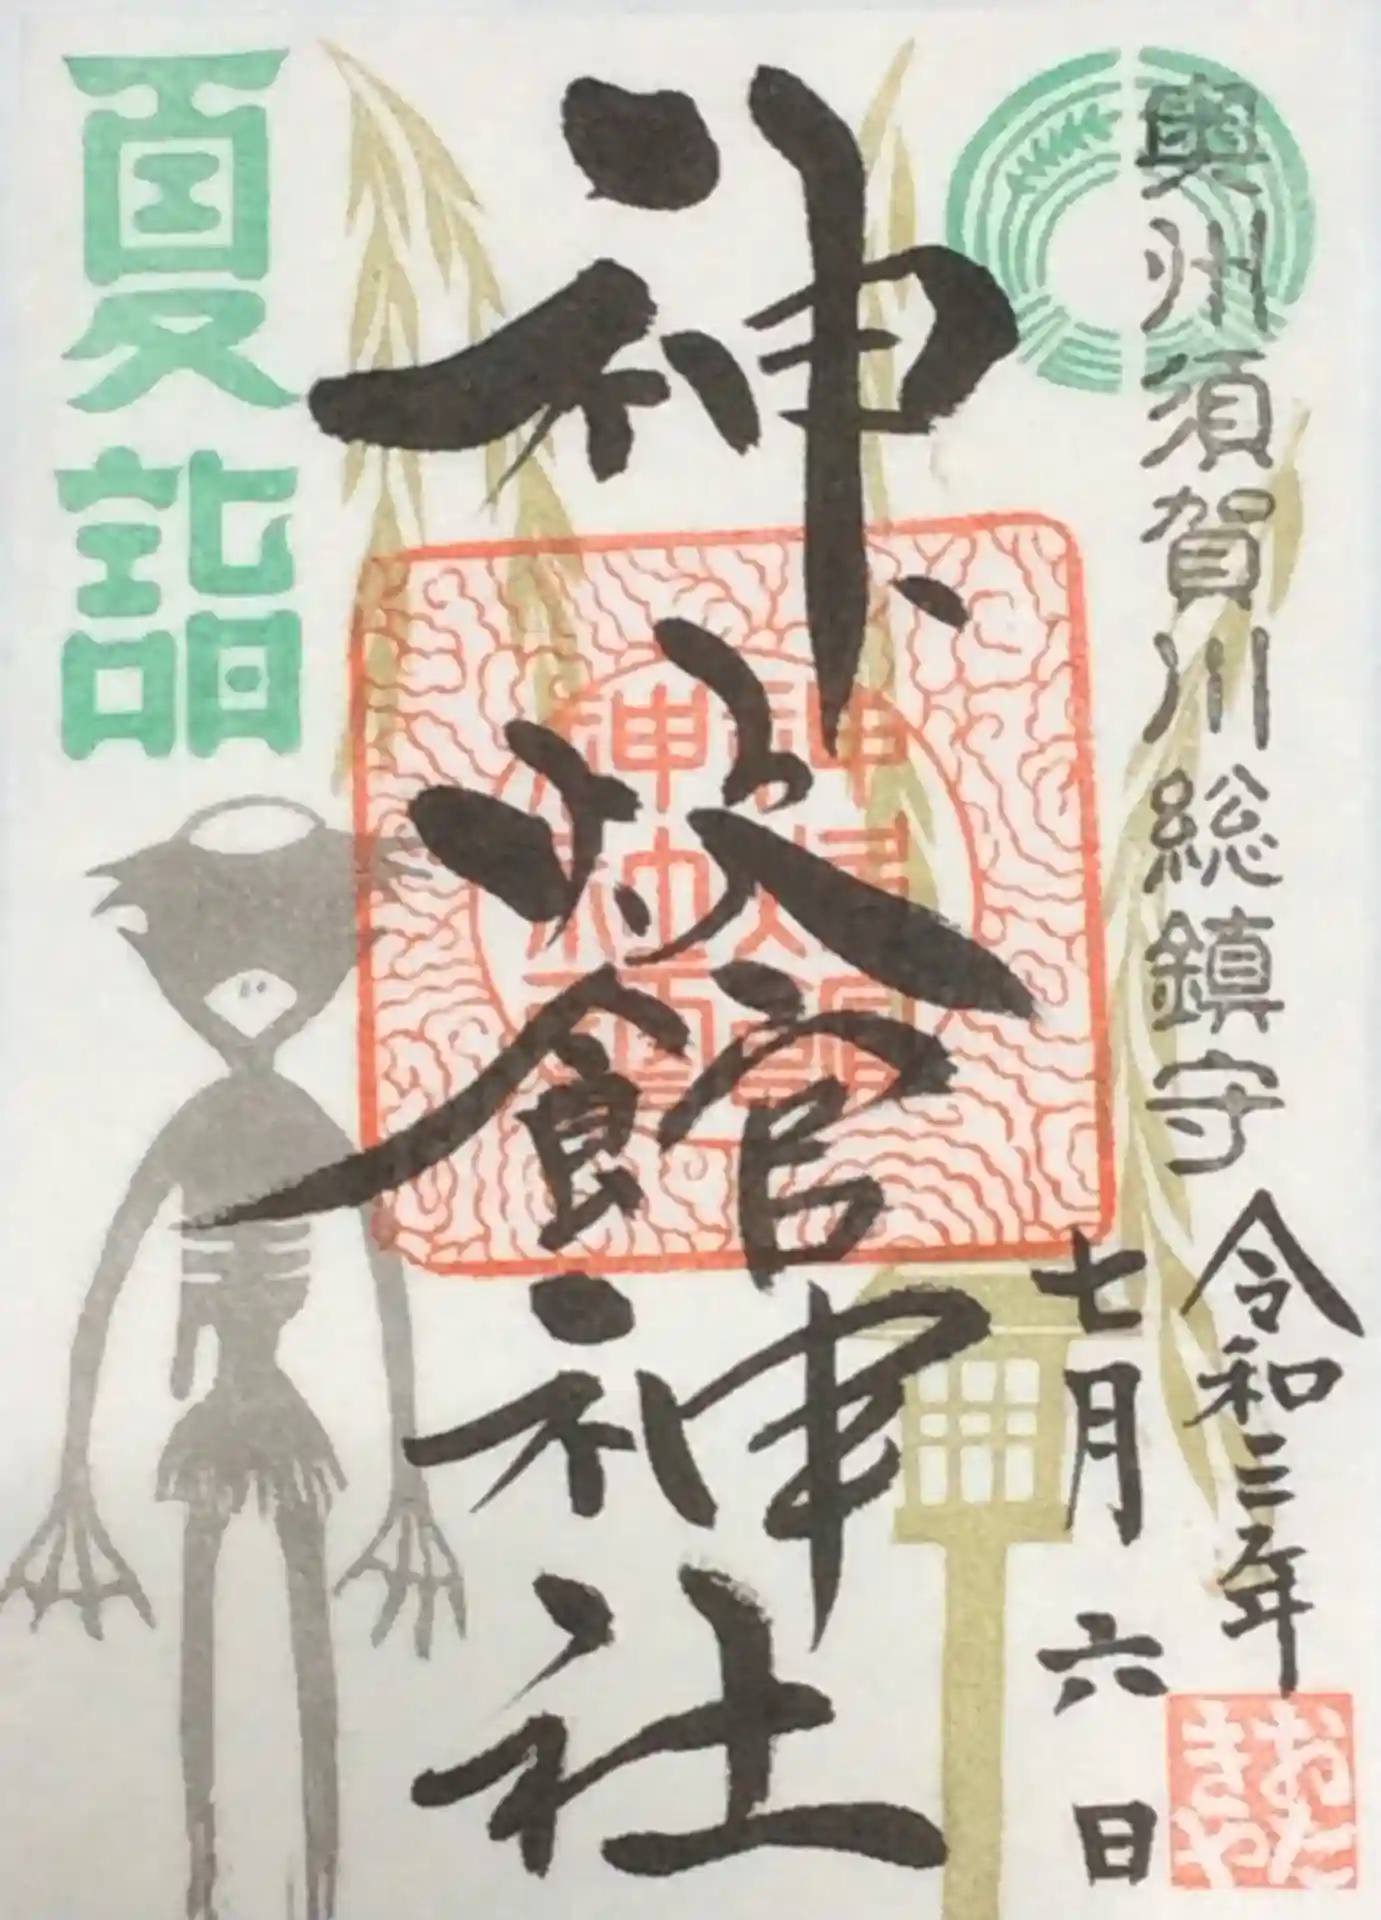 奥州須賀川総鎮守
令和三年
七月六日
おた
きや
神炊館神社
夏詣